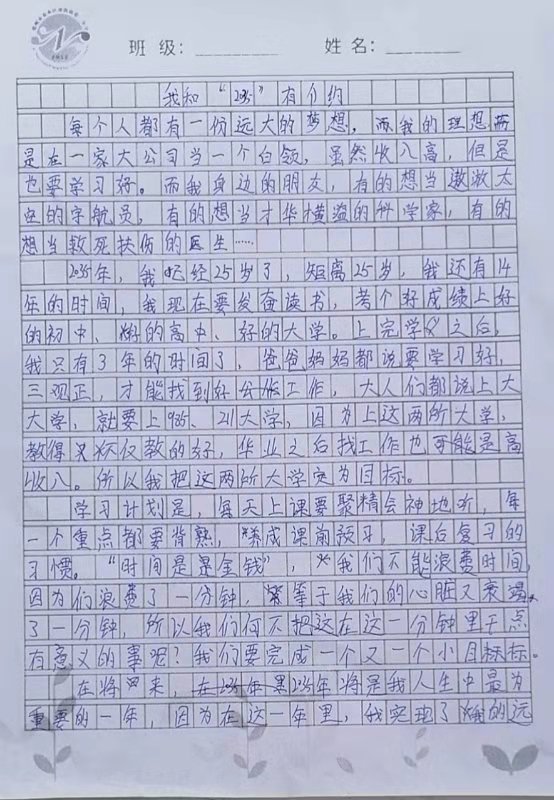 班级：
姓名：
我和“2035”有个约
每个人都有一份远大的梦想，而我的理想
是在一家大公司当一个白领，虽然收入高，但是
也要学习好。而我身边的朋友，有的想当遨游太
空的宇航员，有的想当才华横溢的科学家，有的
想当救死扶伤的医生……
2035年，我已经25岁了，短离25岁，我还有14
年的时间，我现在要发奋读书，考个好成绩上好
的初中、好的高中、好的大学。上完学之后，
我只有3年的时间了，爸爸妈妈都说要学习好，
三观正，才能找到好工作，大人们都说上大
大学，就要上985、211大学，因为上这两所大学，
教得不仅教的好，毕业之后找工作也可能是高
收入。所以我把这两所大学定为目标。
学习计划是，每天上课要聚精会神地听，每
一个重点都要背熟，养成课前预习，课后复习的
习惯。“时间是金钱”，我们不能浪费时间，
因为们浪费了一分钟，等于我们的心脏又衰竭
了一分钟，所以我们何不把这在这一分钟里干点
有意义的事呢？我们要完成一个又一个小目标。
在将来，2035年将是我人生中最为
重要的一年，因为在这一年里，我实现了我的远